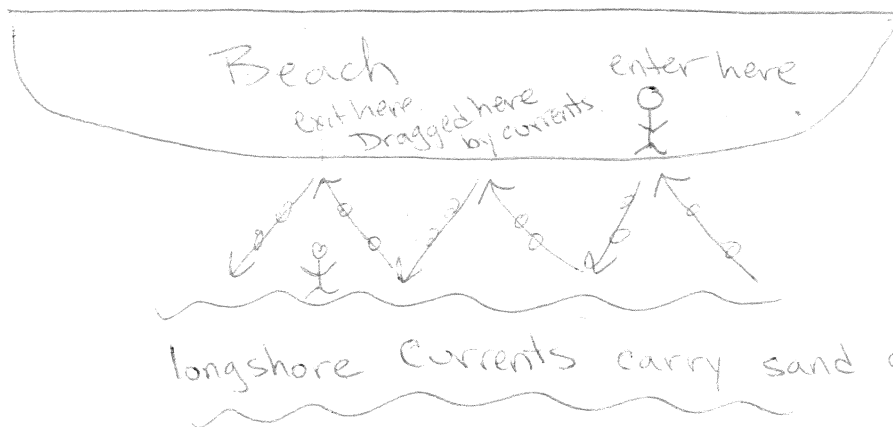 Beach
enter here
exit here
Dragged here
by currents.
longshore Currents carry sand